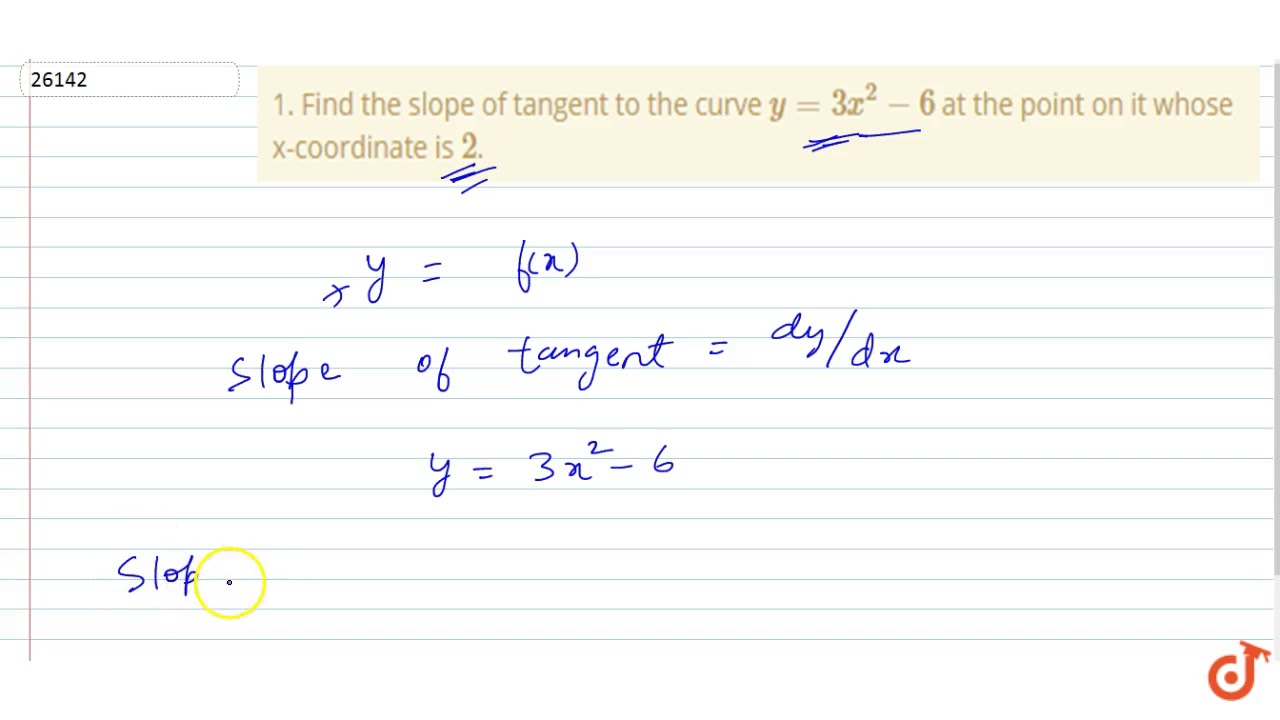 26142
1. Find the slope of tangent to the curve y = 3x² − 6 at the point on it whose
x-coordinate is 2.
y = f(x)
slope of tangent = dy/dx
y = 3x² − 6
Slop